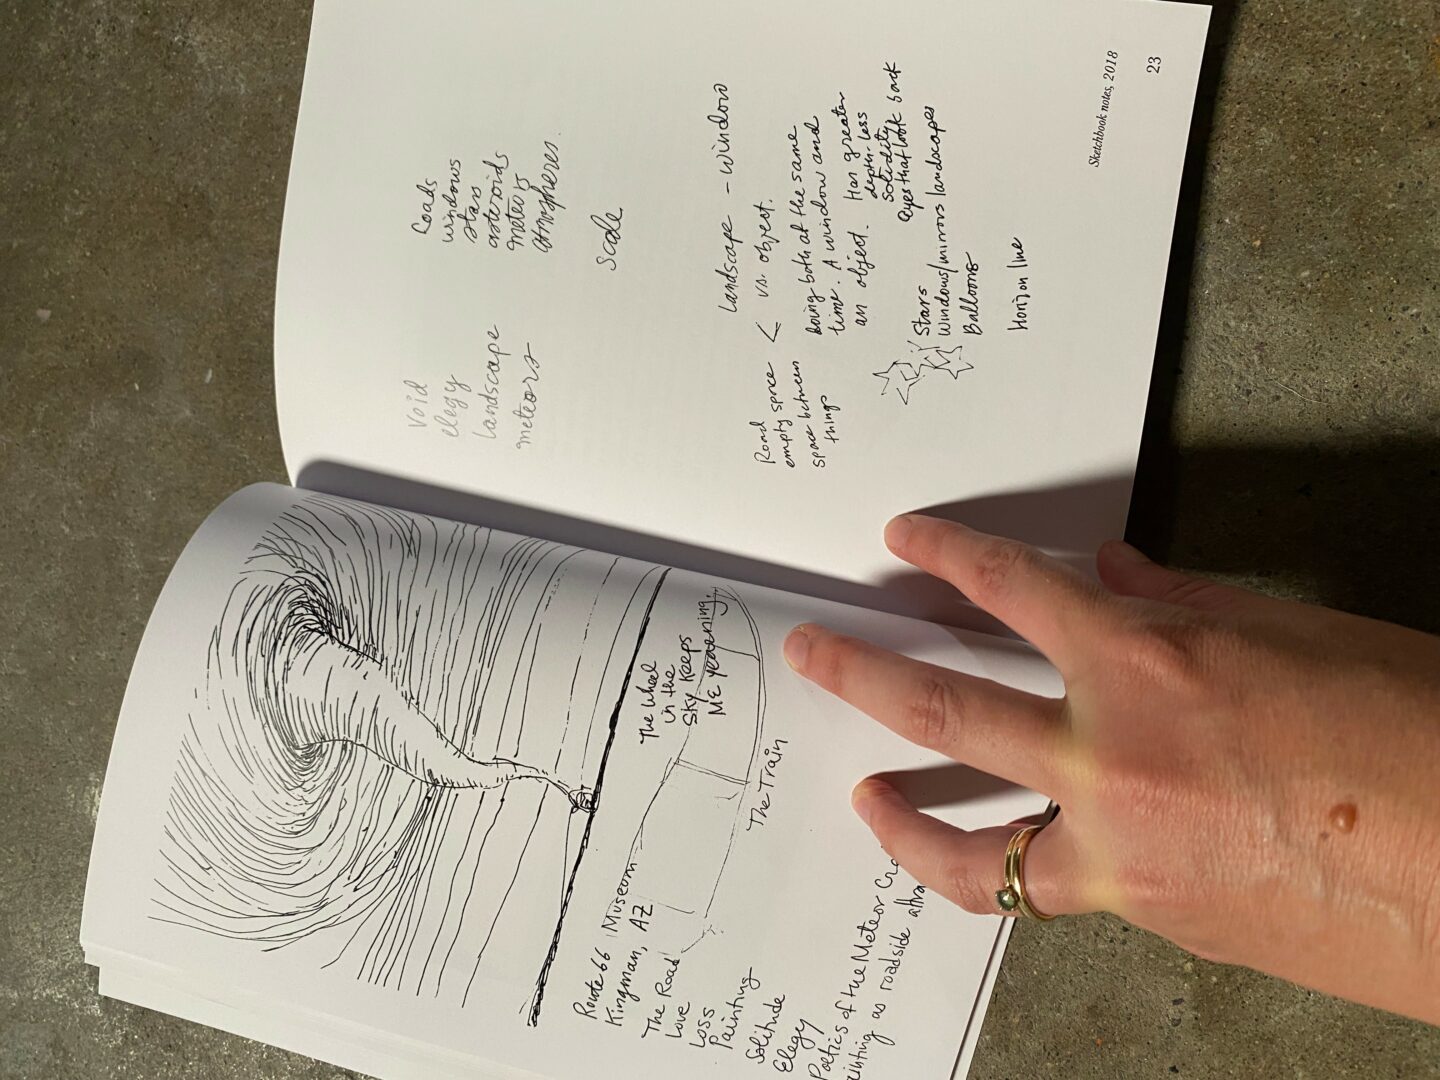 The Wheel
in the
Sky Keeps
ME yearning.
Route 66 Museum
Kingman, AZ
The Road
Love
Loss
Painting
Solitude
Elegy
The Train
Poetics of the Meteor
as roadside
void
elegy
landscape
meteors
Roads
windows
stars
asteroids
meteors
atmospheres.
Scale
Landscape - window
< vs. object.
Road
empty space
space between
things
being both at the same
time. A window and
an object.
Has greater
depth. less
solidity
eyes that look back
Stars
Windows/mirrors landscapes
Balloons
Horizon line
Sketchbook notes, 2018
23